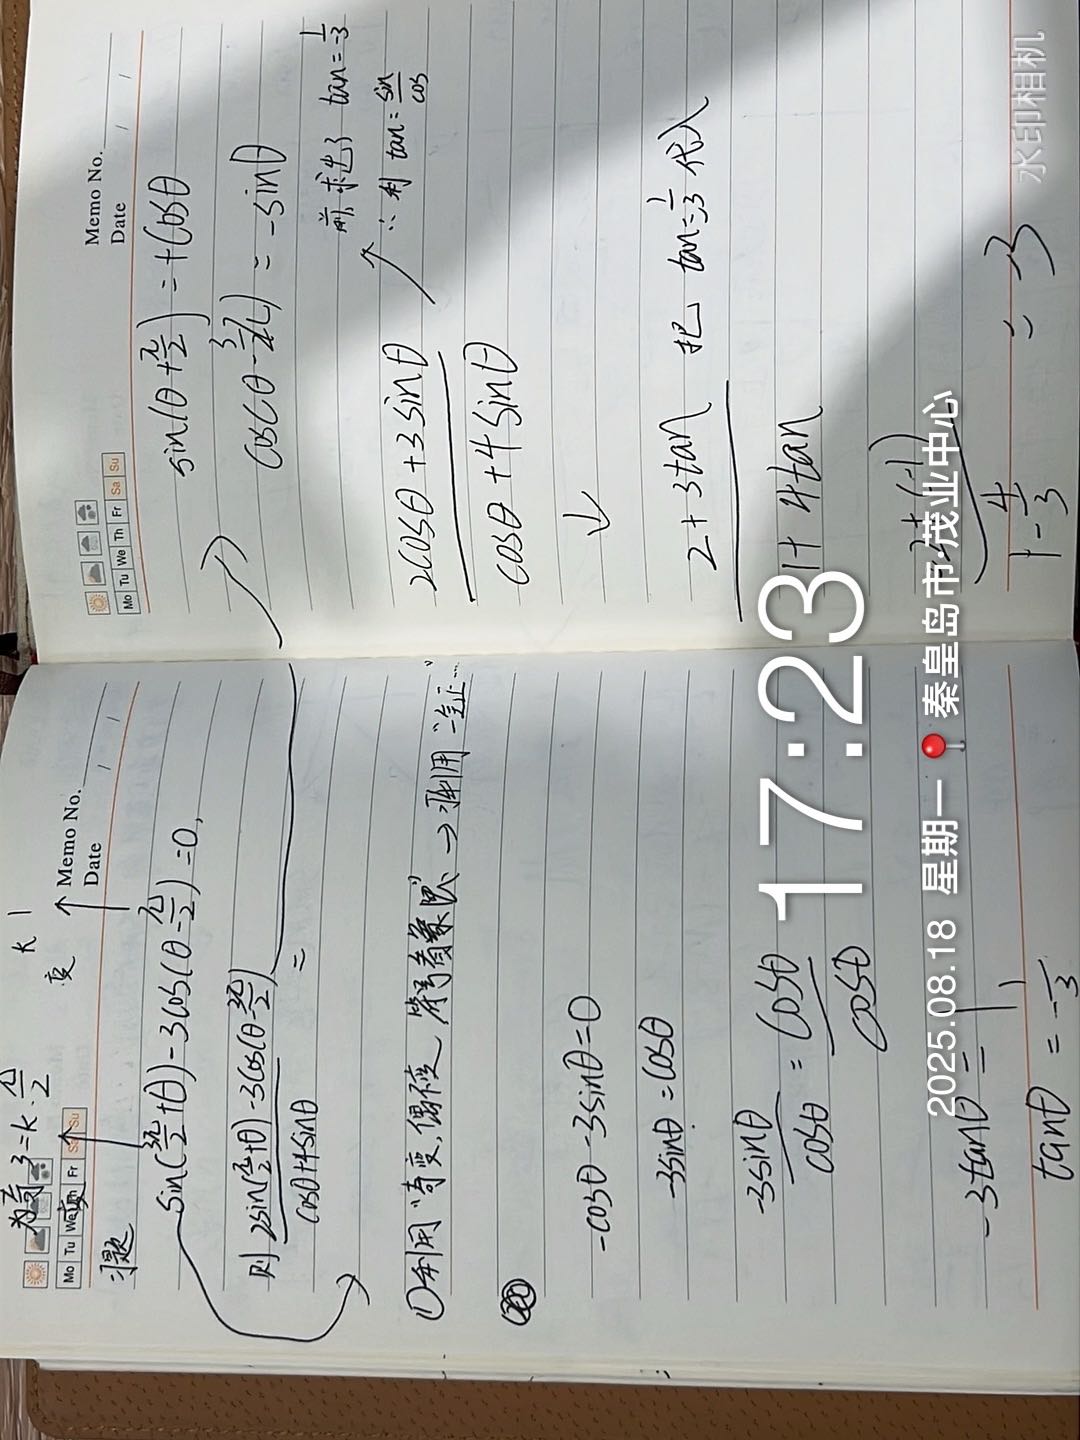 为奇 3=k·π/2
变 k 1
Mo Tu We Th Fr Sa Su
Memo No.
Date / /
习题
sin(3π/2+θ)-3cos(θ-π/2)=0,
则 2sin(π/2+θ)-3cos(θ-3π/2)
cosθ+4sinθ
=
①利用"奇变,偶不变,符号看象限"→利用"一全正…"
-cosθ-3sinθ=0
-3sinθ=cosθ
-3sinθ/cosθ = cosθ/cosθ
-3tanθ=1
tanθ=-1/3
Mo Tu We Th Fr Sa Su
Memo No.
Date / /
sin(θ+π/2)=+cosθ
=-sinθ
前,求出了 tan=1/-3
∴利 tan=sin/cos
2cosθ+3sinθ
cosθ+4sinθ
2+3tan
1+4tan
把 tan=1/-3 代入
1-4/3
=-3
17:23
2025.08.18 星期一 秦皇岛市·茂业中心
水印相机